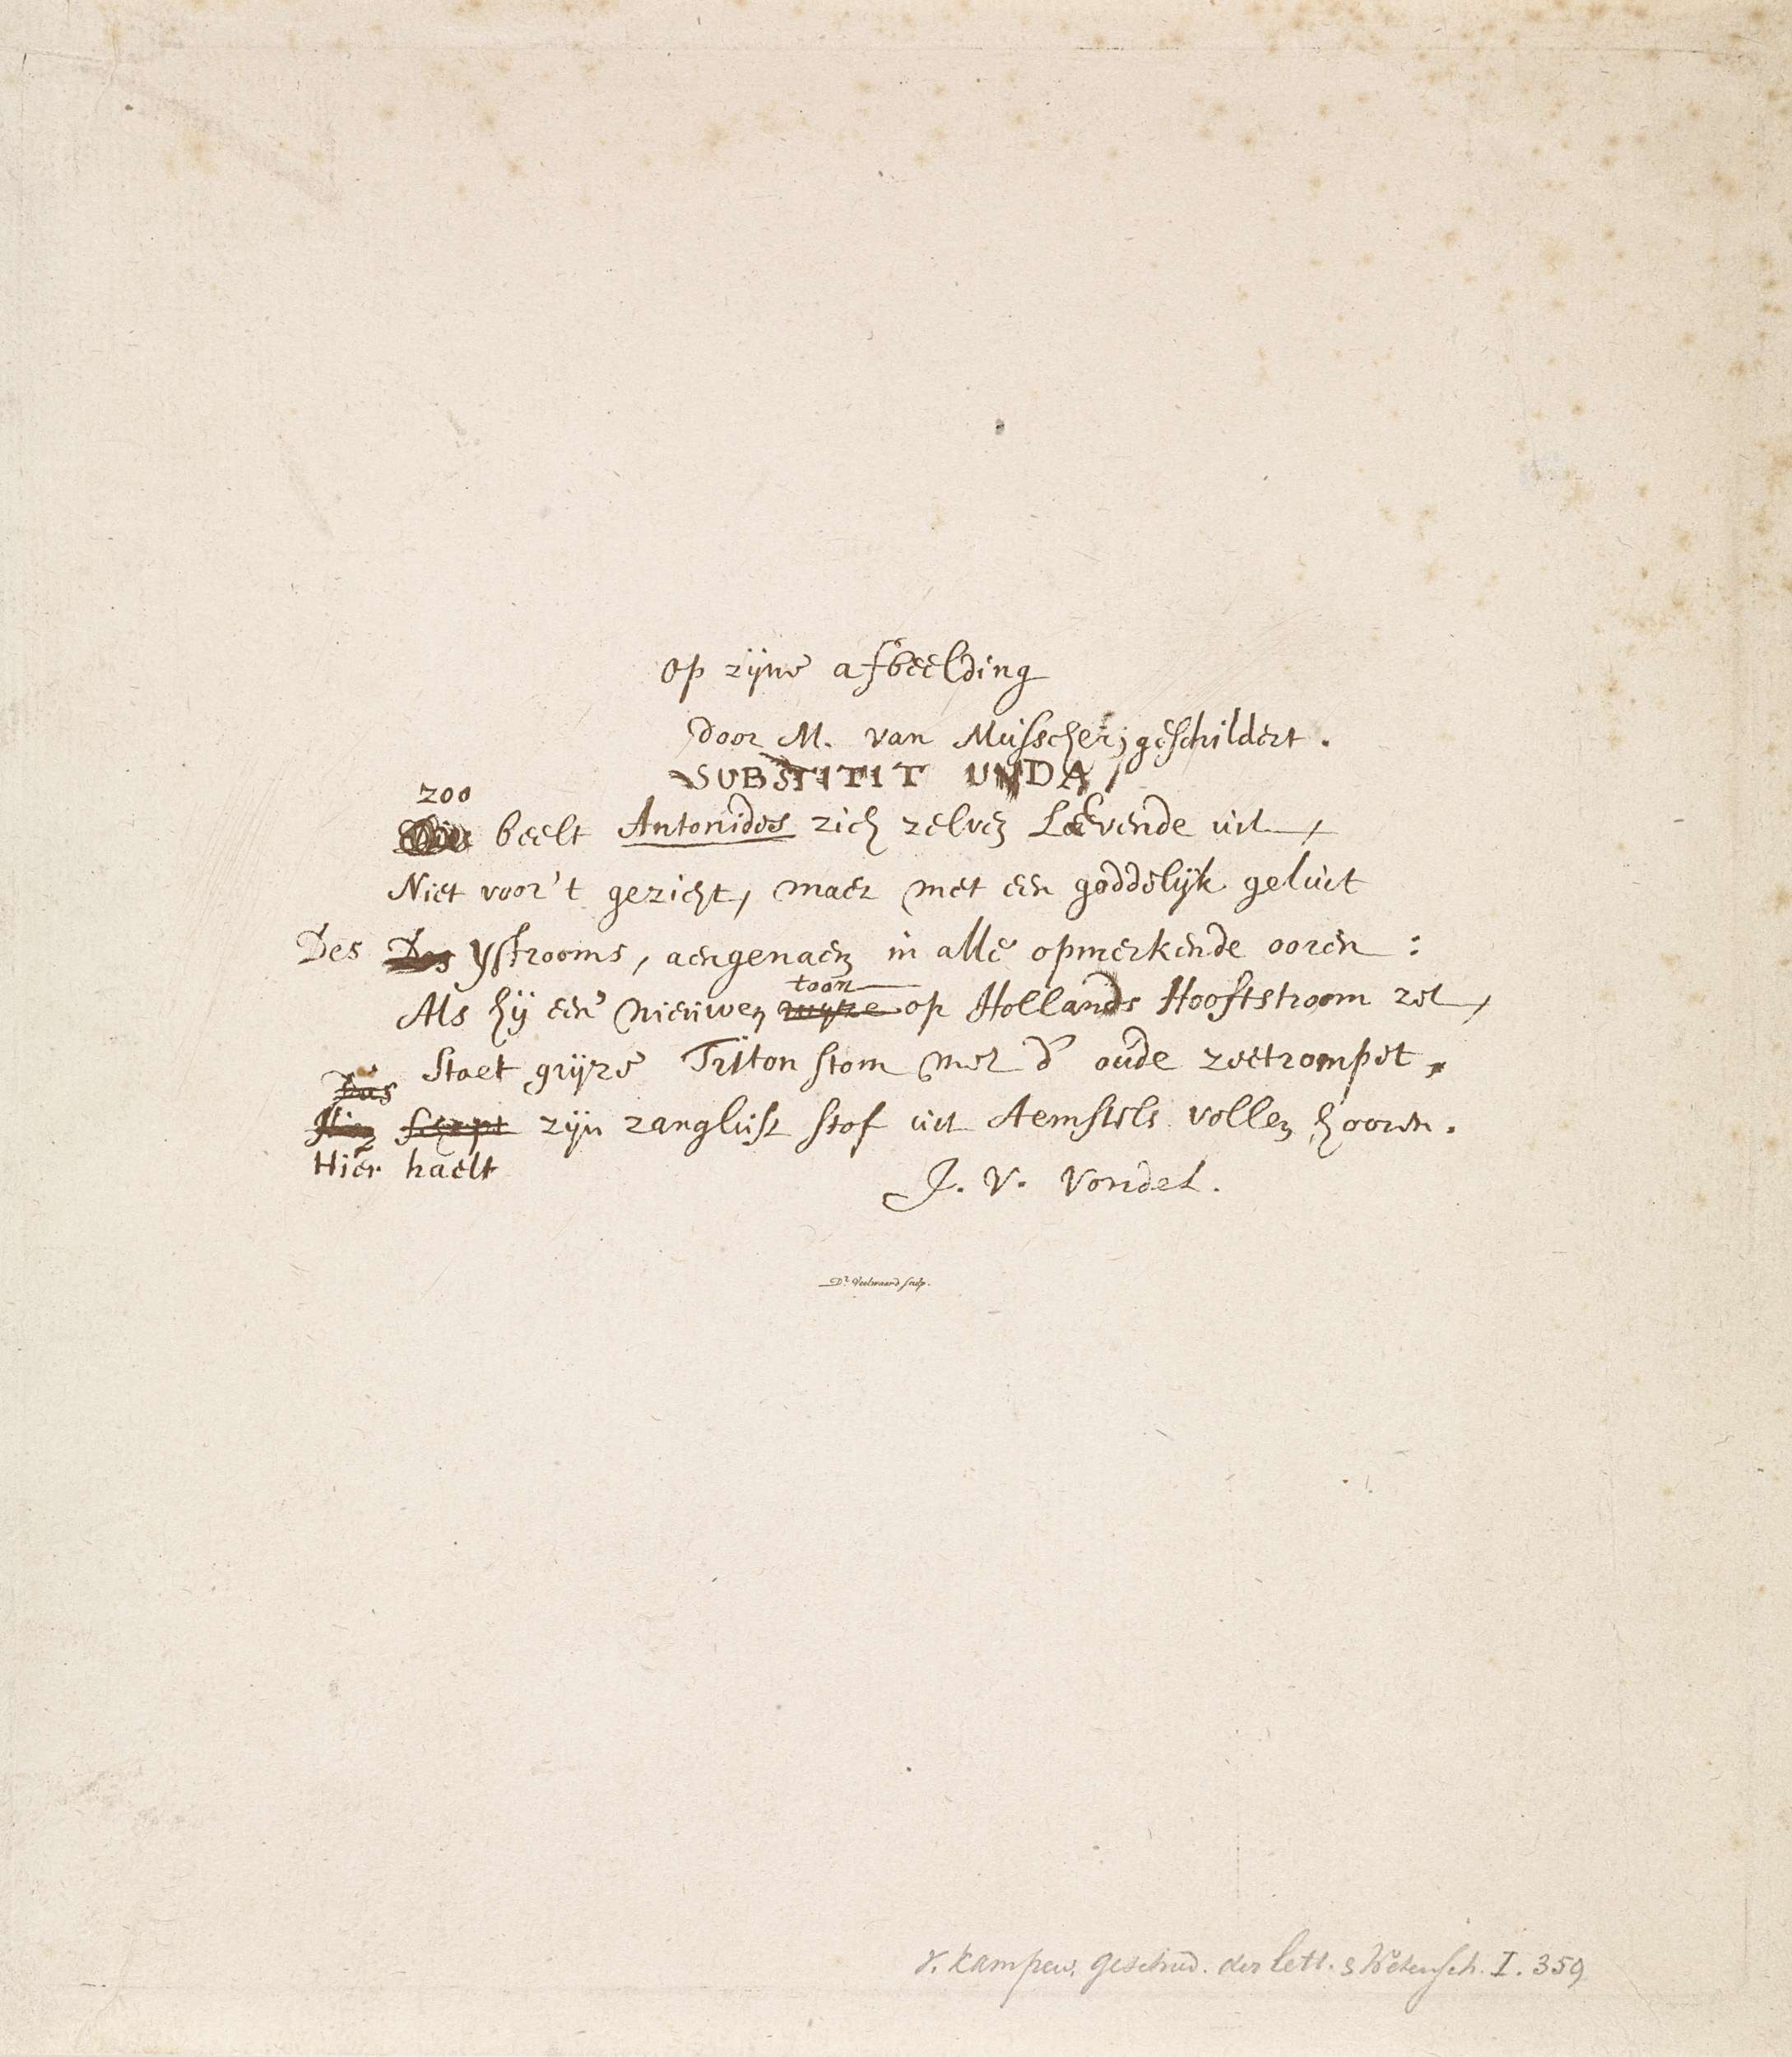 Op zijne afbeelding
Door M. van Musscher, geschildert.
SUBSTITIT UNDA
zoo
beelt Antonides zich zelven Levende uit,
Niet voor't gezicht, maer met een goddelijk geluit
Des Des Ystrooms, aengenaem in alle opmerkende ooren:
toon
Als hy een' nieuwen wyze op Hollands Hooftstroom zet,
Staet gryze Triton stom met d' oude zeetrompet,
Dus
Hier schept zijn zanglust stof uit Aemstels vollen hooren.
Hier haelt
J. V. Vondel.
Dl. Veelwaard sculp.
v. Kampen, geschied. der lett. & Wetensch. I. 359